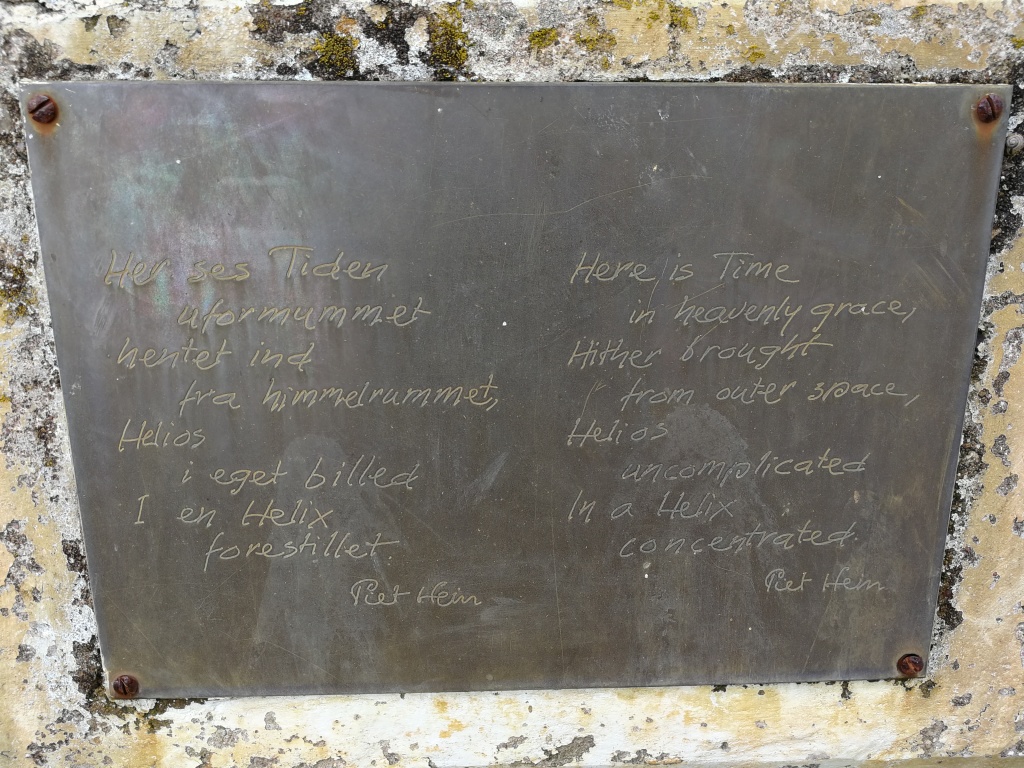 Her ses Tiden
uformummet
hentet ind
fra himmelrummet,
Helios
i eget billed
I en Helix
forestillet.
Piet Hein
Here is Time
in heavenly grace,
Hither brought
from outer space,
Helios
uncomplicated
In a Helix
concentrated.
Piet Hein